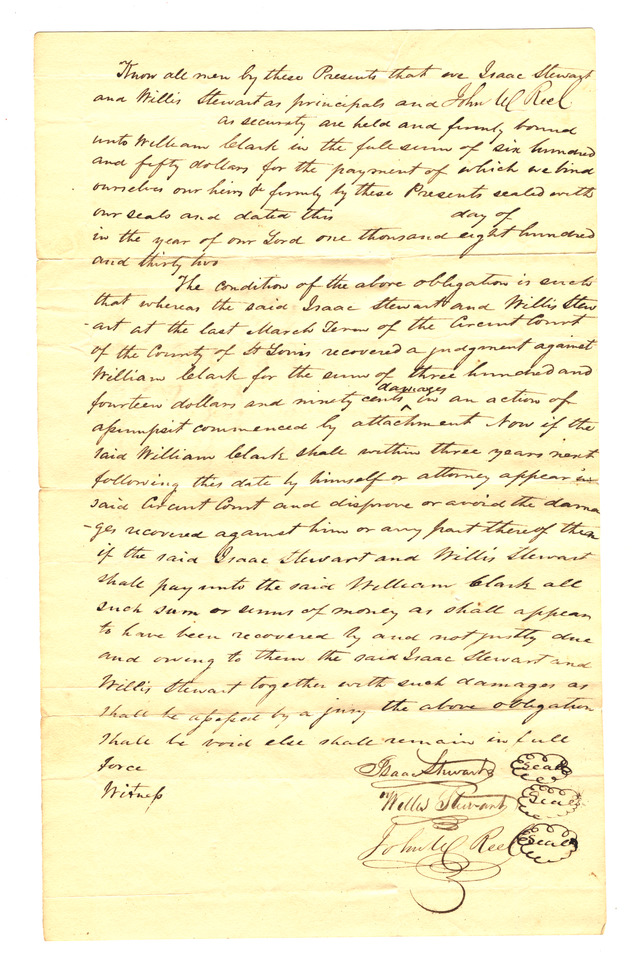 Know all men by these Presents that we Isaac Stewart
and Willis Stewart as principals and John W Reel
as security are held and firmly bound
unto William Clark in the full sum of six hundred
and fifty dollars for the payment of which we bind
ourselves our heirs & firmly by these Presents sealed with
our seals and dated this day of
in the year of our Lord one thousand eight hundred
and thirty two
The condition of the above obligation is such
that whereas the said Isaac Stewart and Willis Stew
-art at the last March Term of the Circuit Court
of the County of St Louis recovered a judgment against
William Clark for the sum of three hundred and
fourteen dollars and ninety cents ^damages in an action of
assumpsit commenced by attachment Now if the
said William Clark shall within three years next
following this date by himself or attorney appear in
said Circuit Court and disprove or avoid the dama
-ges recovered against him or any part thereof then
if the said Isaac Stewart and Willis Stewart
shall pay unto the said William Clark all
such sum or sums of money as shall appear
to have been recovered by and not justly due
and owing to them the said Isaac Stewart and
Willis Stewart together with such damages as
shall be assessed by a jury the above obligation
shall be void else shall remain in full
force
Isaac Stewart seal
Witness
Willis Stewart seal
John W Reel seal